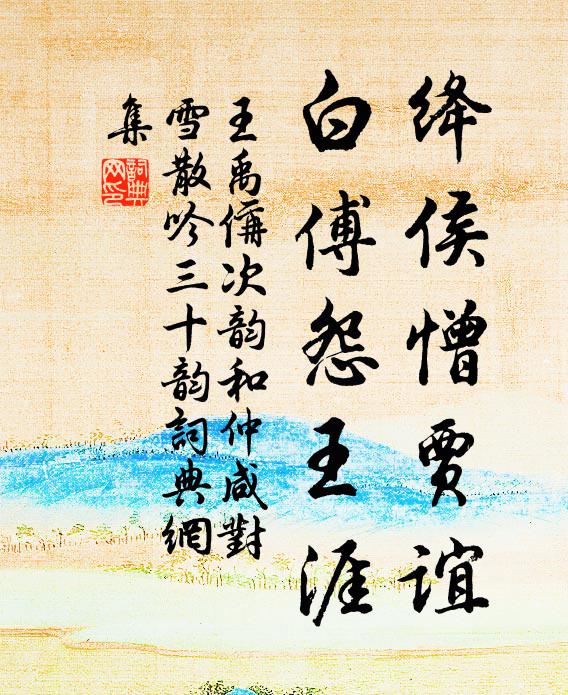 绛侯憎贾谊
白傅怨王涯
王禹偁次韵和仲咸對
雪散吟三十韵詞典網
集
詞典
网印